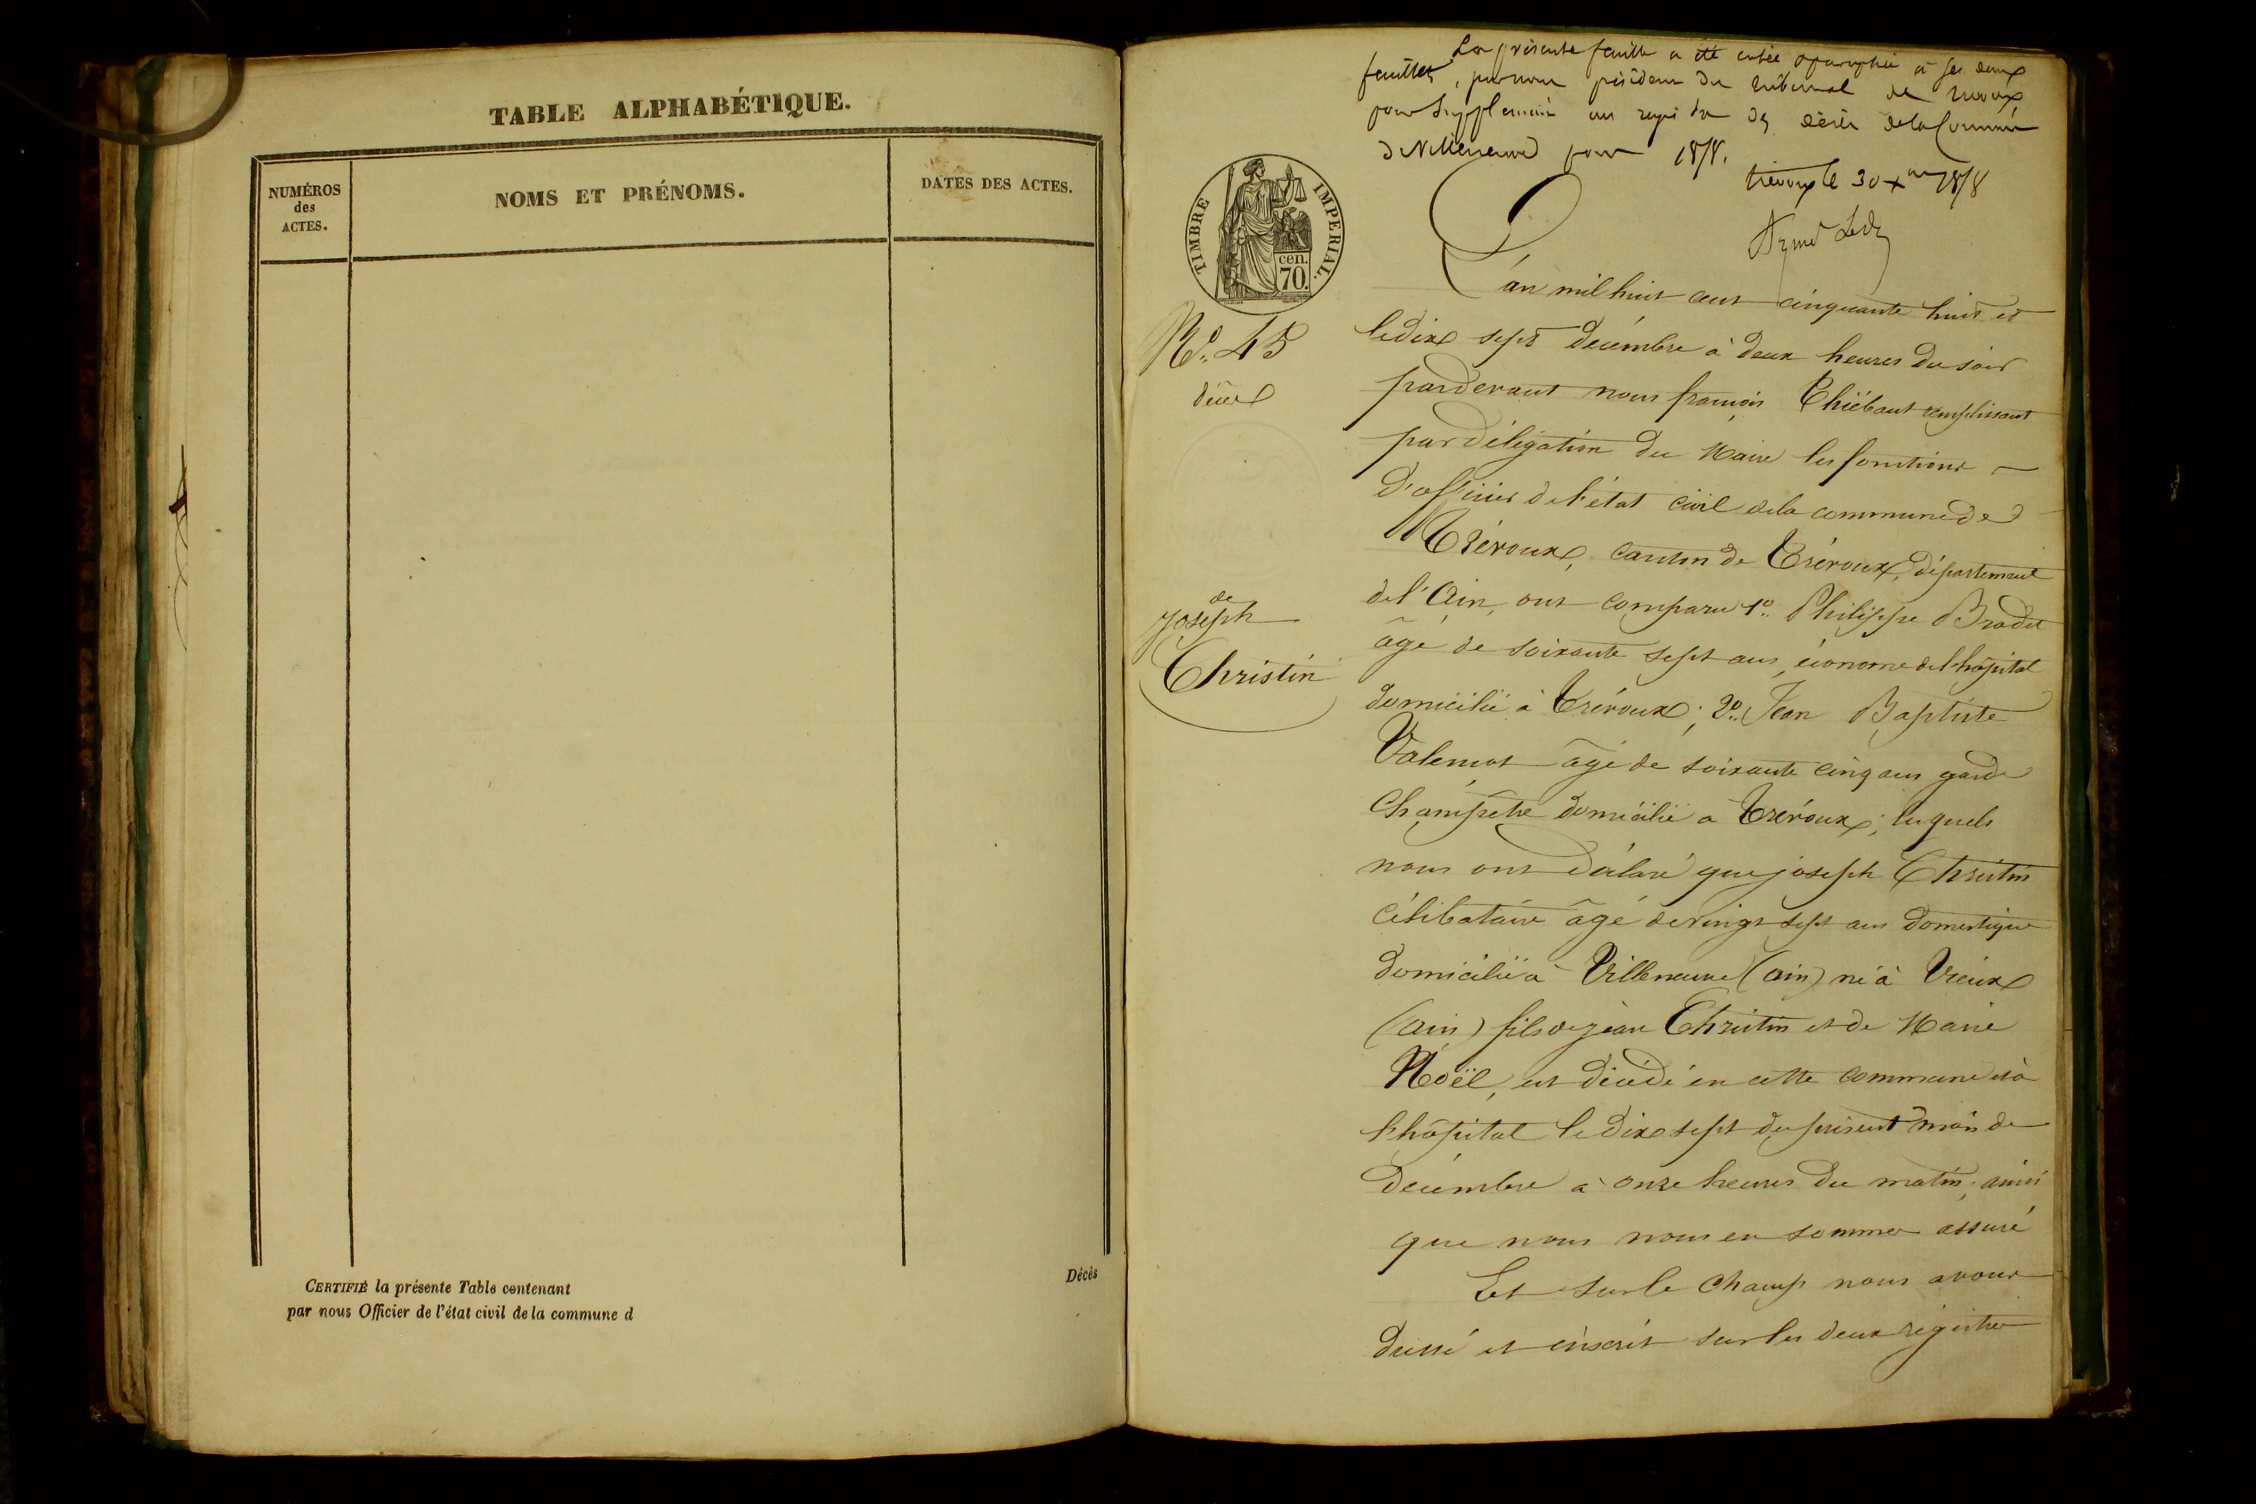 TABLE ALPHABÉTIQUE.
NUMÉROS
des
ACTES.
NOMS ET PRÉNOMS.
DATES DES ACTES.
CERTIFIÉ la présente Table contenant
par nous Officier de l'état civil de la commune d
Décès
La présente feuille a été cotée et paraphée à ses deux
feuillets, par nous président du tribunal de Trévoux
pour supplément au registre des décès de la Commune
de Villeneuve pour 1858.
Trévoux le 30 Xbre 1858
TIMBRE IMPERIAL.
cen.
70.
No. 45
décès
de
Joseph
Christin
L'an mil huit cent cinquante huit et
le dix sept décembre à deux heures du soir
pardevant nous françois Thiébaut remplissant
par délégation du Maire les fonctions
d'officier de l'état civil de la commune de
Trévoux, canton de Trévoux, département
de l'Ain, ont comparu 1o. Philippe Brodet
âgé de soixante sept ans, économe de l'hôpital
domicilié à Trévoux; 2o. Jean Baptiste
Valemot âgé de soixante cinq ans garde
Champêtre domicilié à Trévoux; lesquels
nous ont déclaré que joseph Christin
célibataire âgé de vingt sept ans domestique
domicilié à Villeneuve (ain) né à Vieux
(ain) fils de jean Christin et de Marie
Noël, est décédé en cette commune et à
l'hôpital le dix sept du présent mois de
décembre à onze heures du matin, ainsi
que nous nous en sommes assuré
Et sur le champ nous avons
dressé et inscrit sur les deux régistres